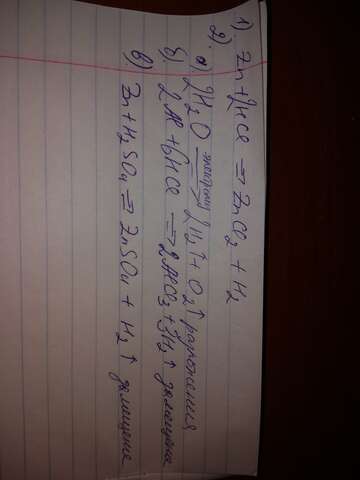 1). Zn + 2HCl => ZnCl₂ + H₂
2).
а) 2H₂O =электролиз=> 2H₂↑ + O₂↑ разложения
б). 2Al + 6HCl => 2AlCl₃ + 3H₂↑ замещение
в). Zn + H₂SO₄ => ZnSO₄ + H₂↑ замещение